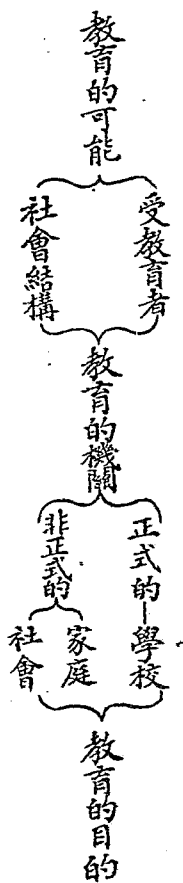 教育的可能
受教育者
社會結構
教育的機關
正式的—學校
非正式的
家庭
社會
教育的目的